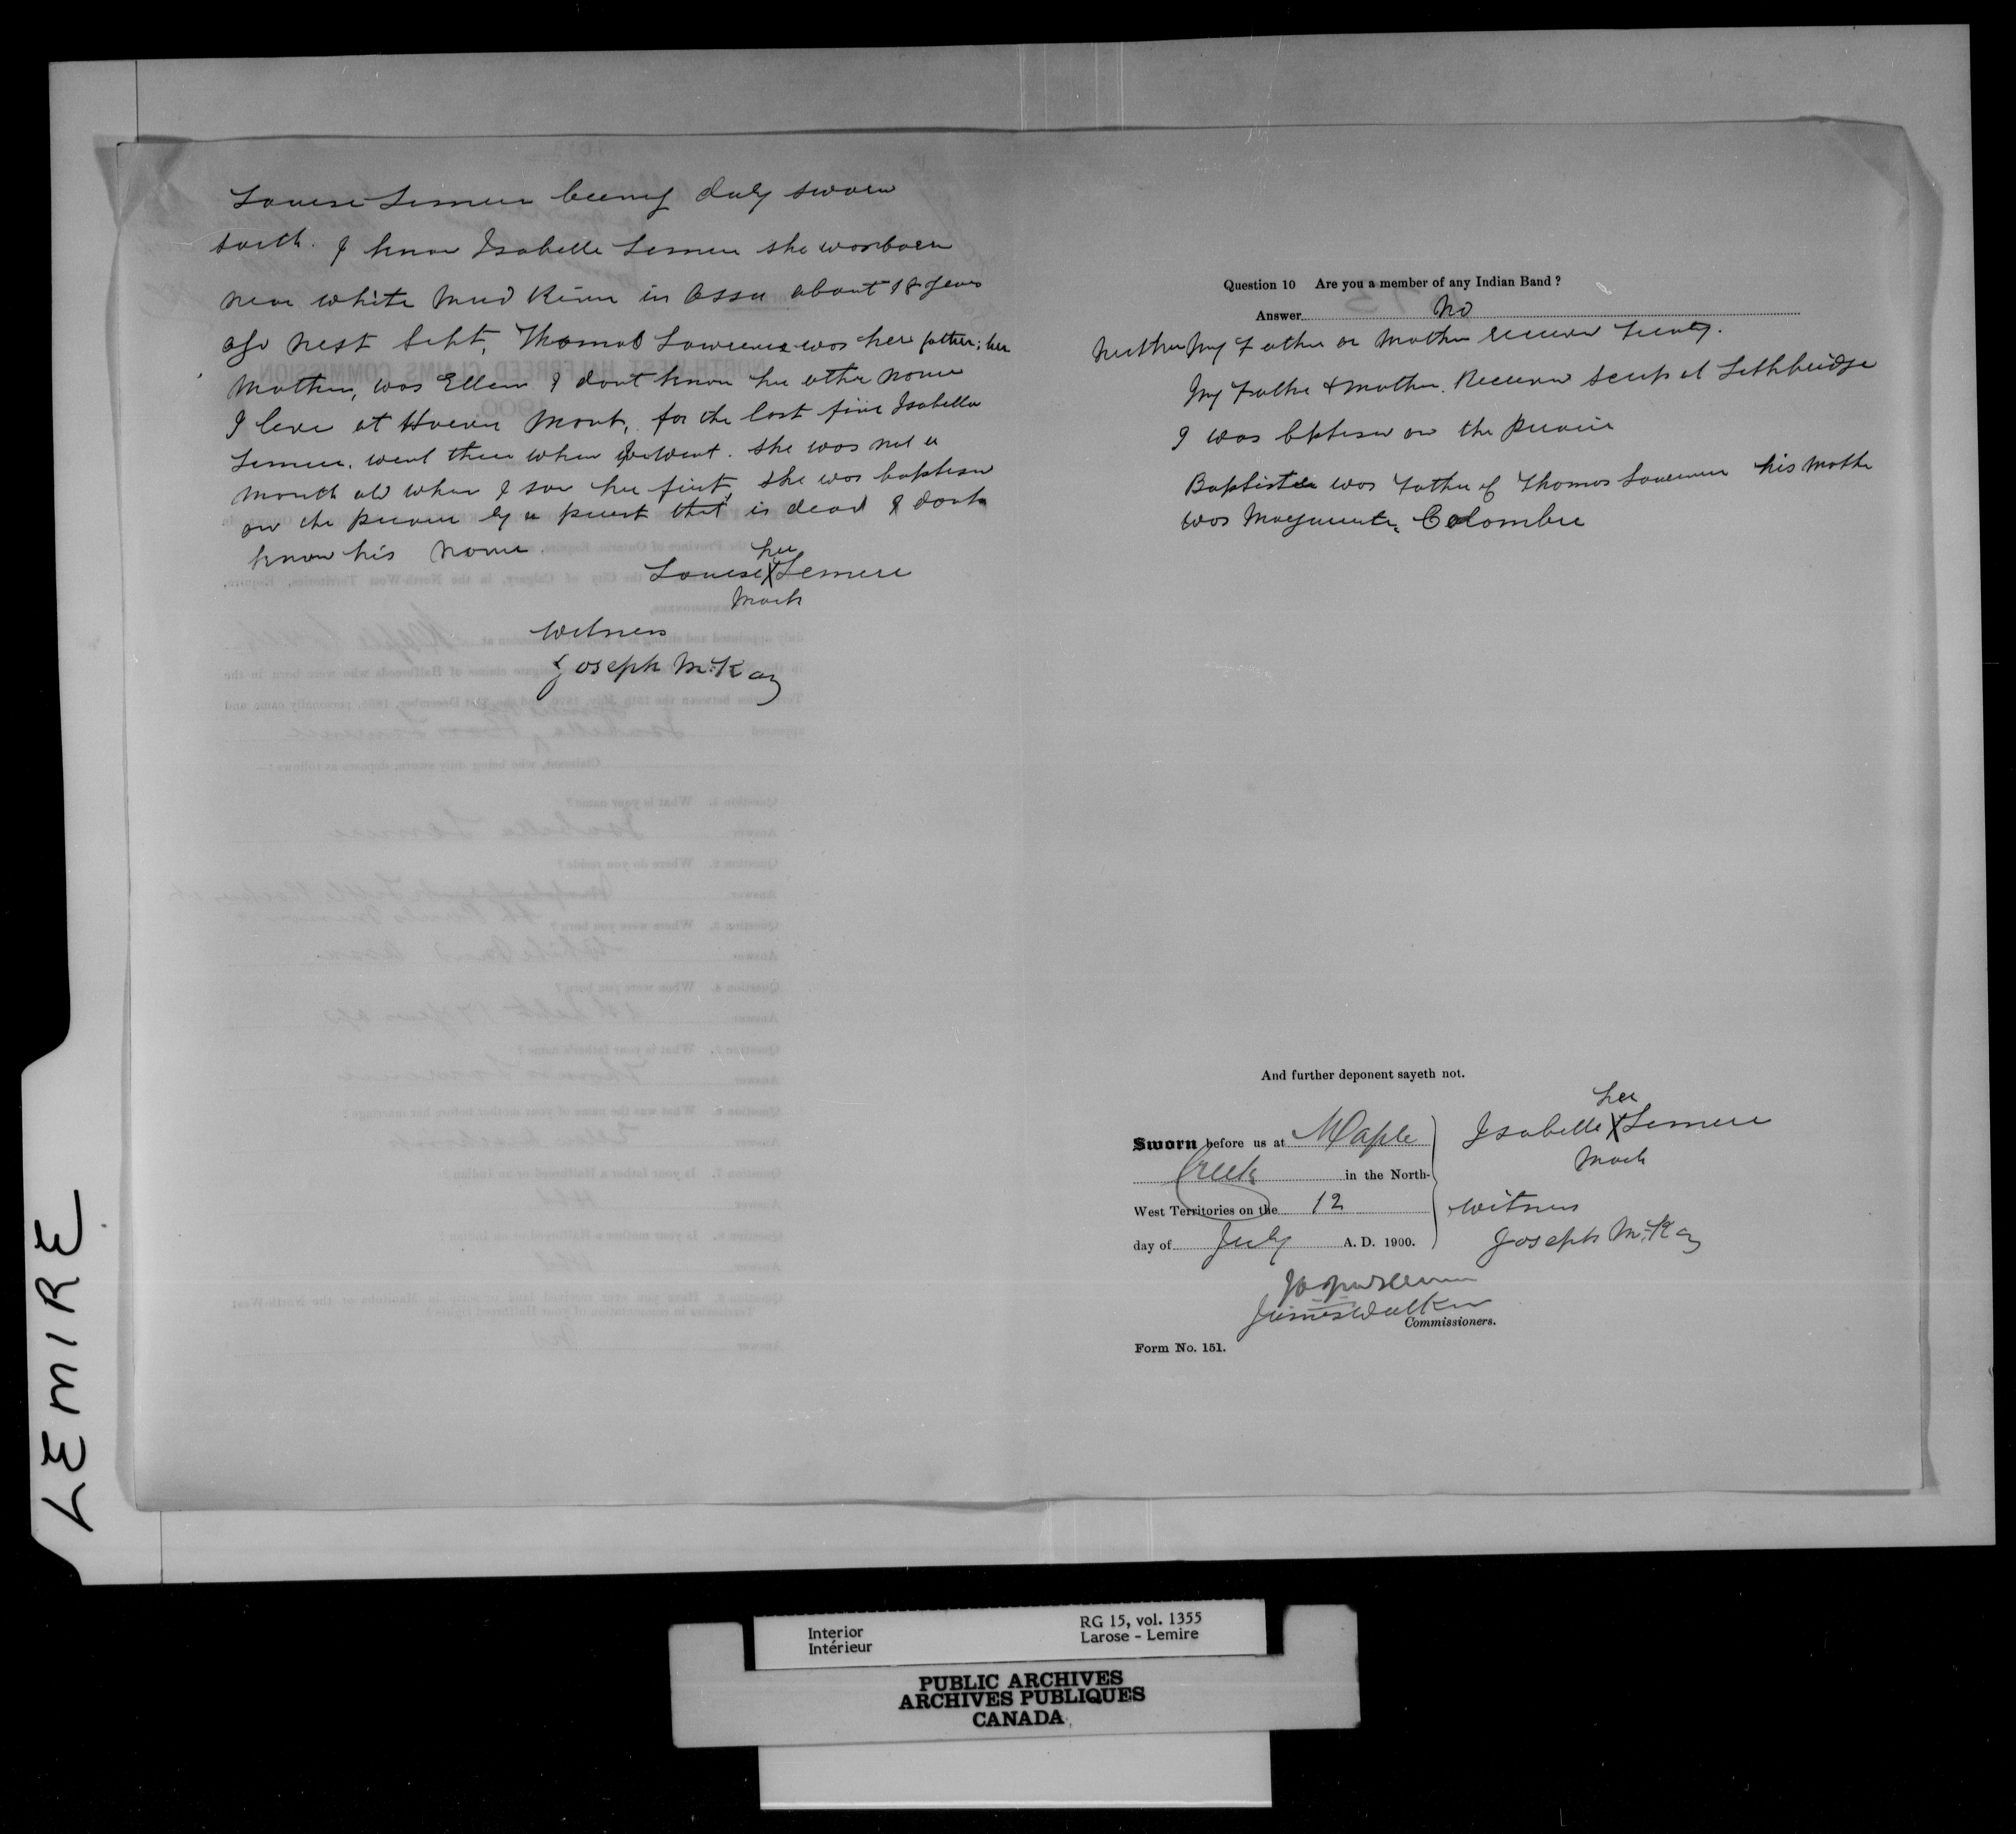 Louise Lemire being duly sworn
saith. I know Isabelle Lemire she was born
near white Mud River in Assa about 18 years
ago next Sept, Thomas Lawrence was her father; her
Mother, was Ellen I dont know her other name
I live at Havre Mont, for the last five Isabella
Lemire, went there when went. she was not a
month old when I saw her first, she was baptised
on the prairie by a priest that is dead & dont
know his name.
her
Louise X Lemire
Mark
Witness
Joseph McKay
Question 10 Are you a member of any Indian Band?
Answer No
Neither My Father or Mother receive Treaty.
My Father & mother. Receive Scrip at Lethbridge
I was bptised on the Prairie
Baptiste was Father of Thomas Lawrence his Mother
was Marguerite Colombre
And further deponent sayeth not.
Sworn before us at Maple
Creek in the North-
West Territories on the 12
day of July A. D. 1900.
her
Isabelle X Lemire
Mark
Witness
Joseph McKay
James Walker
Commissioners.
Form No. 151.
LEMIRE
Interior
Intérieur
RG 15, vol. 1355
Larose - Lemire
PUBLIC ARCHIVES
ARCHIVES PUBLIQUES
CANADA